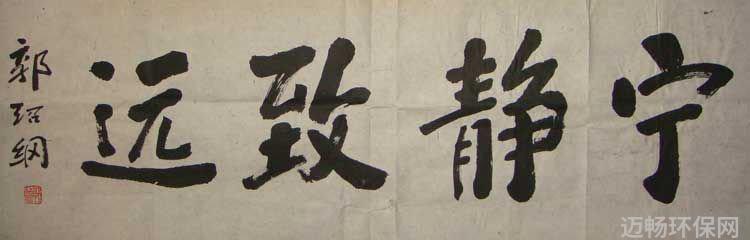 宁静致远
郭绍纲
迈畅环保网